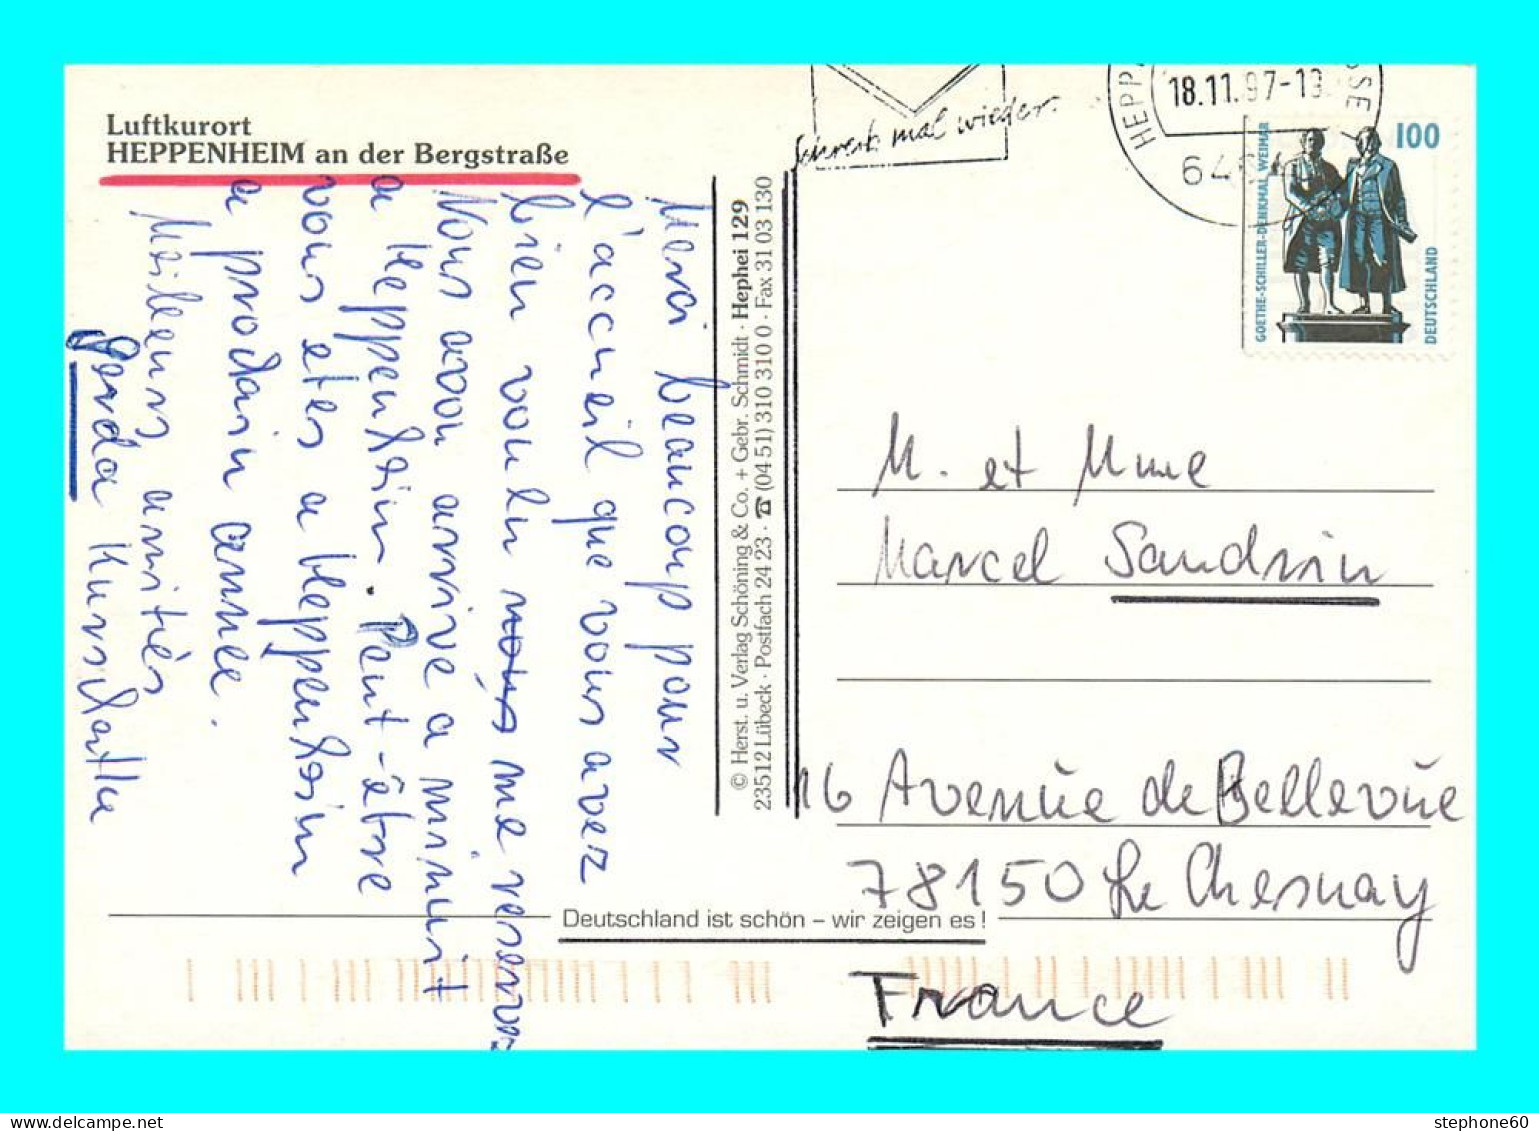 Luftkurort
HEPPENHEIM an der Bergstraße
Merci beaucoup pour
l'accueil que vous avez
bien voulu nous me reserver
Nous avon arrive a minuit
a Heppenheim. Peut-être
vous etes a Heppenheim
a prochain annee.
Meilleurs amitiés
Gerda
© Herst. u. Verlag Schöning & Co. + Gebr. Schmidt · Hephei 129
23512 Lübeck · Postfach 24 23 · ☎ (04 51) 310 310 0 · Fax 31 03 130
Schreib mal wieder.
18.11.97-19
100
GOETHE-SCHILLER-DENKMAL WEIMAR
DEUTSCHLAND
M. et Mme
Marcel Sandrin
16 Avenüe de Bellevüe
78150 Le Chesnay
France
Deutschland ist schön – wir zeigen es!
stephone60